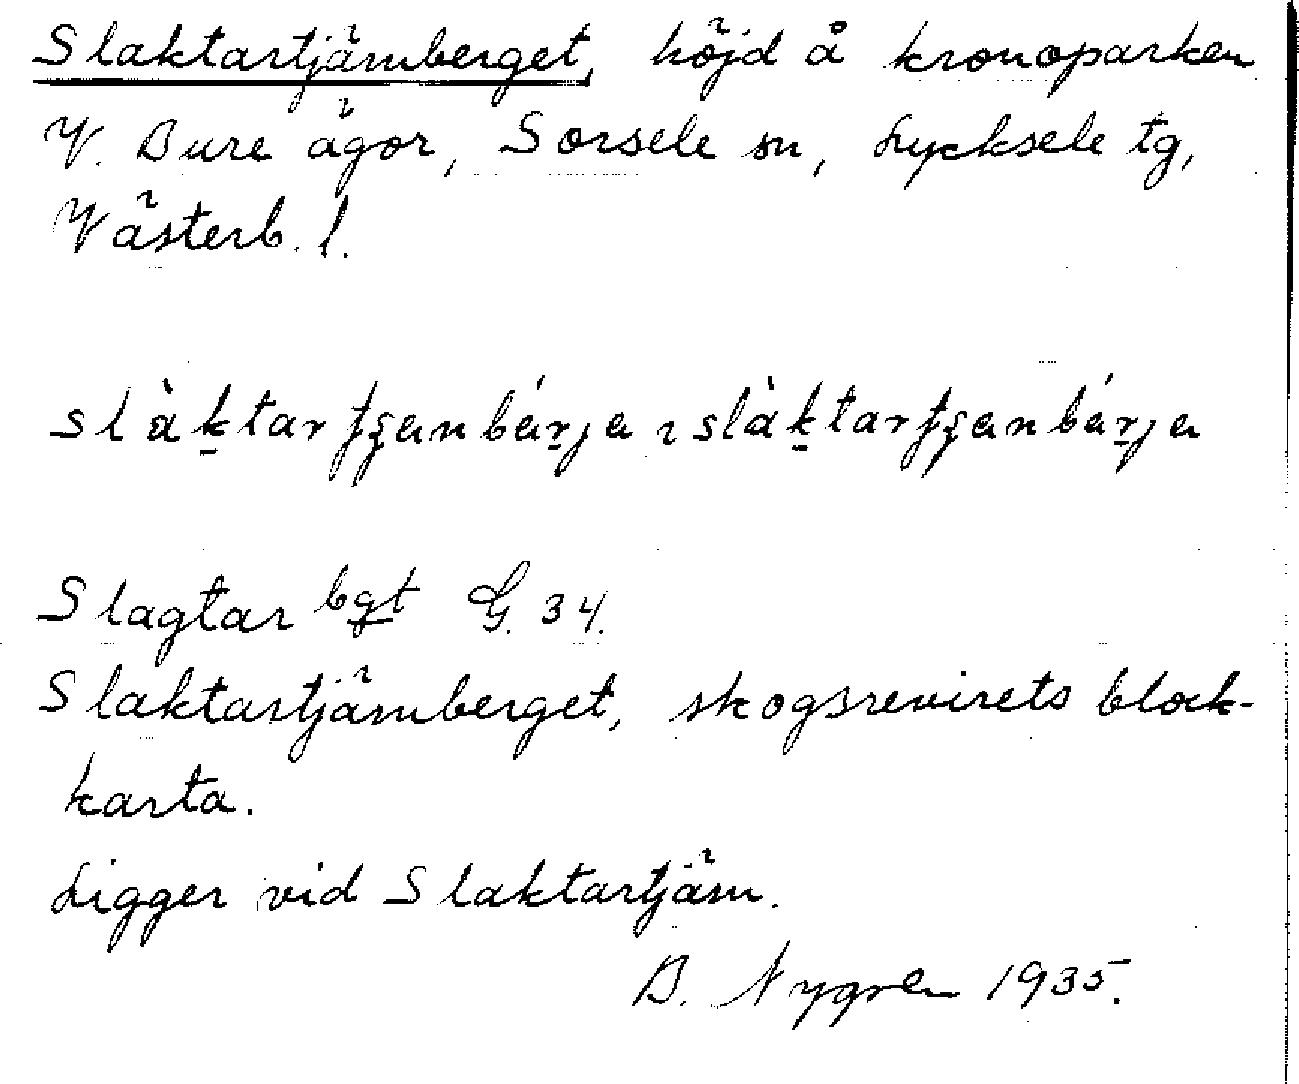 Slaktartjärnberget, höjd å kronoparken
V. Bure ägor, Sorsele sn, Lycksele tg,
Västerb. l.
Slagtar bgt G. 34.
Slaktartjärnberget, skogsrevirets block-
karta.
Ligger vid Slaktartjärn.
B. Nygren 1935.